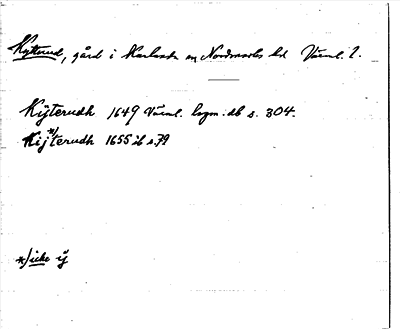 Kytterud, gård i Karlanda sn Nordmarks hd Värml. l.
Kÿterudh 1649 Värml. lagm:db s. 304.
Kij*)terudh 1655 ib s. 79
*) icke ÿ